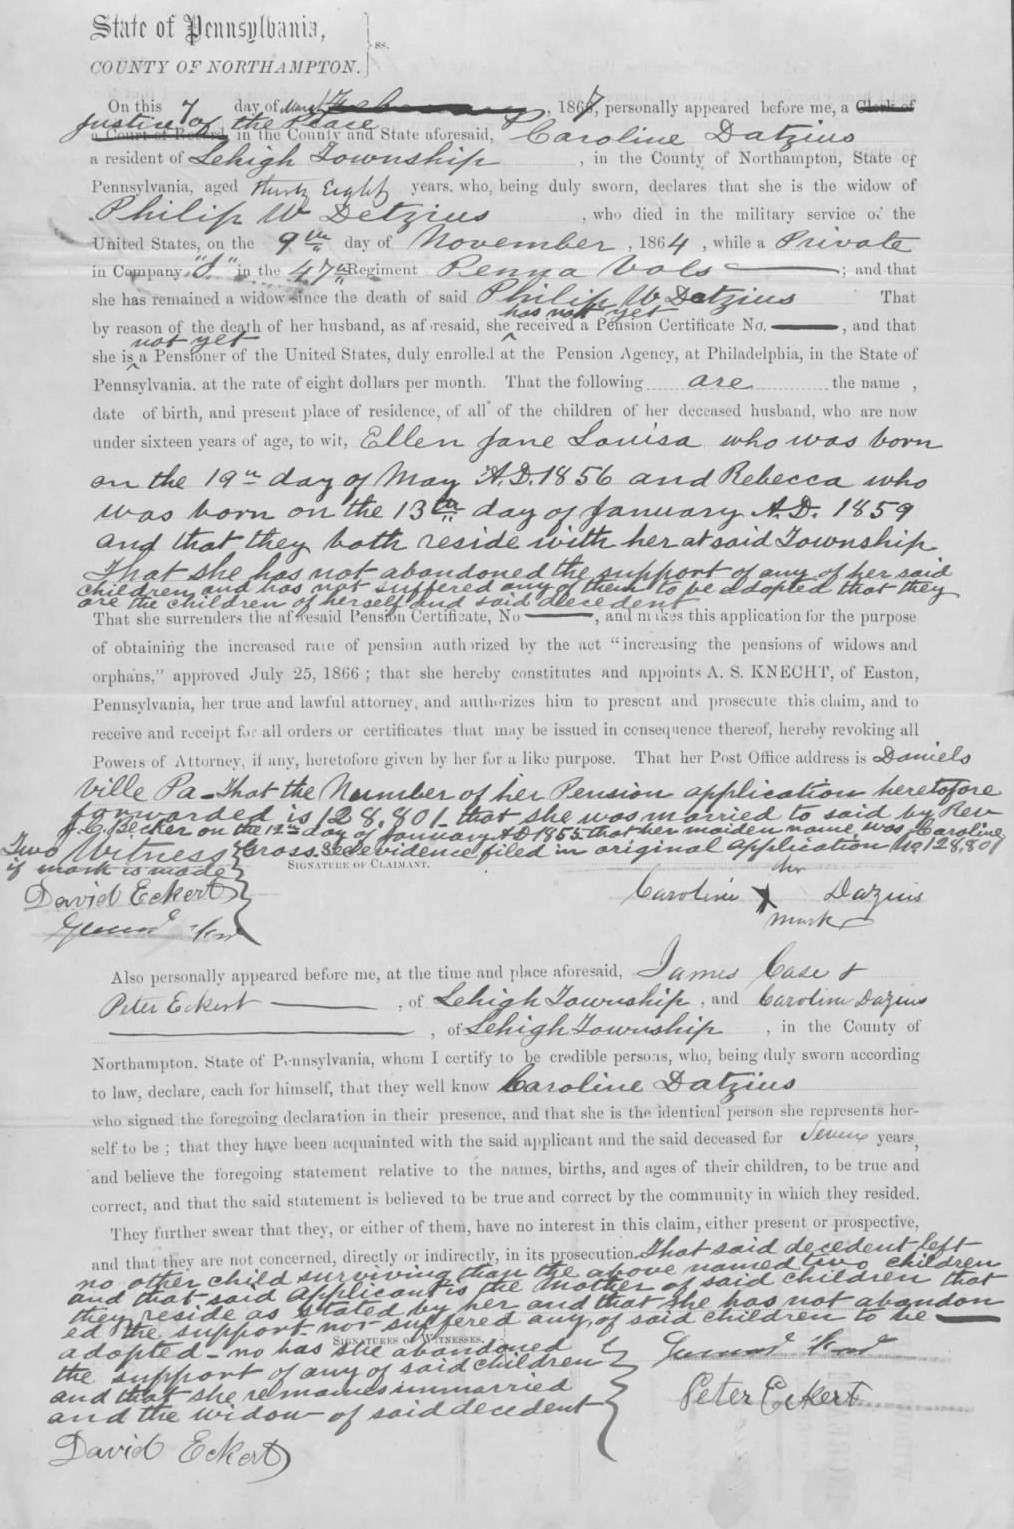 State of Pennsylvania,
COUNTY OF NORTHAMPTON. } ss.
On this 7 day of March, 1867, personally appeared before me, a Clerk of
Justice of the Peace
a Court of Record, in the County and State aforesaid, Caroline Datzius
a resident of Lehigh Township, in the County of Northampton, State of
Pennsylvania, aged Thirty Eight years, who, being duly sworn, declares that she is the widow of
Philip W Detzius, who died in the military service of the
United States, on the 9th day of November, 1864, while a Private
in Company "I" in the 47th Regiment Penna Vols ; and that
she has remained a widow since the death of said Philip W Datzius That
has not yet
by reason of the death of her husband, as aforesaid, she received a Pension Certificate No. , and that
not yet
she is a Pensioner of the United States, duly enrolled at the Pension Agency, at Philadelphia, in the State of
Pennsylvania, at the rate of eight dollars per month. That the following are the name ,
date of birth, and present place of residence, of all of the children of her deceased husband, who are now
under sixteen years of age, to wit, Ellen Jane Louisa who was born
on the 19th day of May A.D. 1856 and Rebecca who
was born on the 13th day of January A.D. 1859
and that they both reside with her at said Township
That she has not abandoned the support of any of her said
children and has not suffered any of them to be adopted that they
are the children of herself and said decedent
That she surrenders the aforesaid Pension Certificate, No , and makes this application for the purpose
of obtaining the increased rate of pension authorized by the act "increasing the pensions of widows and
orphans," approved July 25, 1866 ; that she hereby constitutes and appoints A. S. KNECHT, of Easton,
Pennsylvania, her true and lawful attorney, and authorizes him to present and prosecute this claim, and to
receive and receipt for all orders or certificates that may be issued in consequence thereof, hereby revoking all
Powers of Attorney, if any, heretofore given by her for a like purpose. That her Post Office address is Daniels
ville Pa - That the Number of her Pension application heretofore
forwarded is 128,801 that she was married to said by Rev
Becker on the 12th day of January AD 1855 that her maiden name was Caroline
Cross. See evidence filed in original application No 128,801
Two Witness
if mark is made
SIGNATURE OF CLAIMANT.
her
David Eckert
Caroline X Dazius
mark
Also personally appeared before me, at the time and place aforesaid, James Case &
Peter Eckert , of Lehigh Township, and Caroline Dazius
, of Lehigh Township , in the County of
Northampton, State of Pennsylvania, whom I certify to be credible persons, who, being duly sworn according
to law, declare, each for himself, that they well know Caroline Datzius
who signed the foregoing declaration in their presence, and that she is the identical person she represents her-
self to be ; that they have been acquainted with the said applicant and the said deceased for Seven years,
and believe the foregoing statement relative to the names, births, and ages of their children, to be true and
correct, and that the said statement is believed to be true and correct by the community in which they resided.
They further swear that they, or either of them, have no interest in this claim, either present or prospective,
and that they are not concerned, directly or indirectly, in its prosecution. That said decedent left
no other child surviving than the above named two children
and that said applicant is the mother of said children that
they reside as stated by her and that she has not abandon
ed the support nor suffered any of said children to be
SIGNATURES OF WITNESSES.
adopted - no has she abandoned
the support of any of said children
and that she remains unmarried
and the widow of said decedent
Peter Eckert
David Eckert